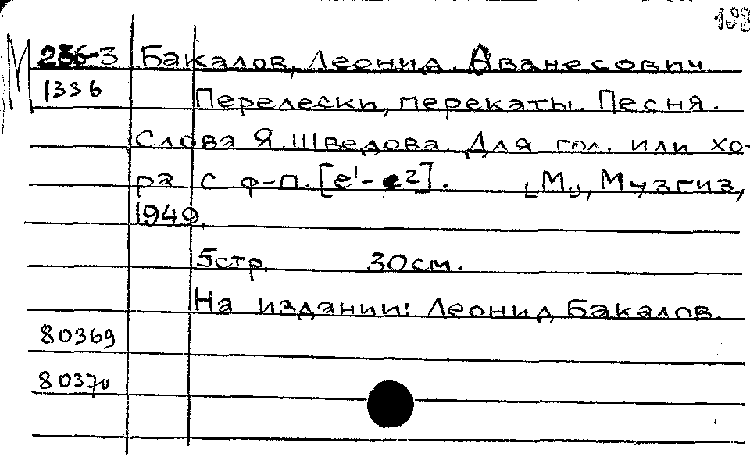 M 236-3 Бакалов, Леонид Аванесович
1336 Перелески, перекаты. Песня.
Слова Я. Шведова. Для гол. или хо-
ра с ф-п. [e¹-e²]. [М.], Музгиз,
1949.
5 стр. 30 см.
На издании: Леонид Бакалов.
80369
80370